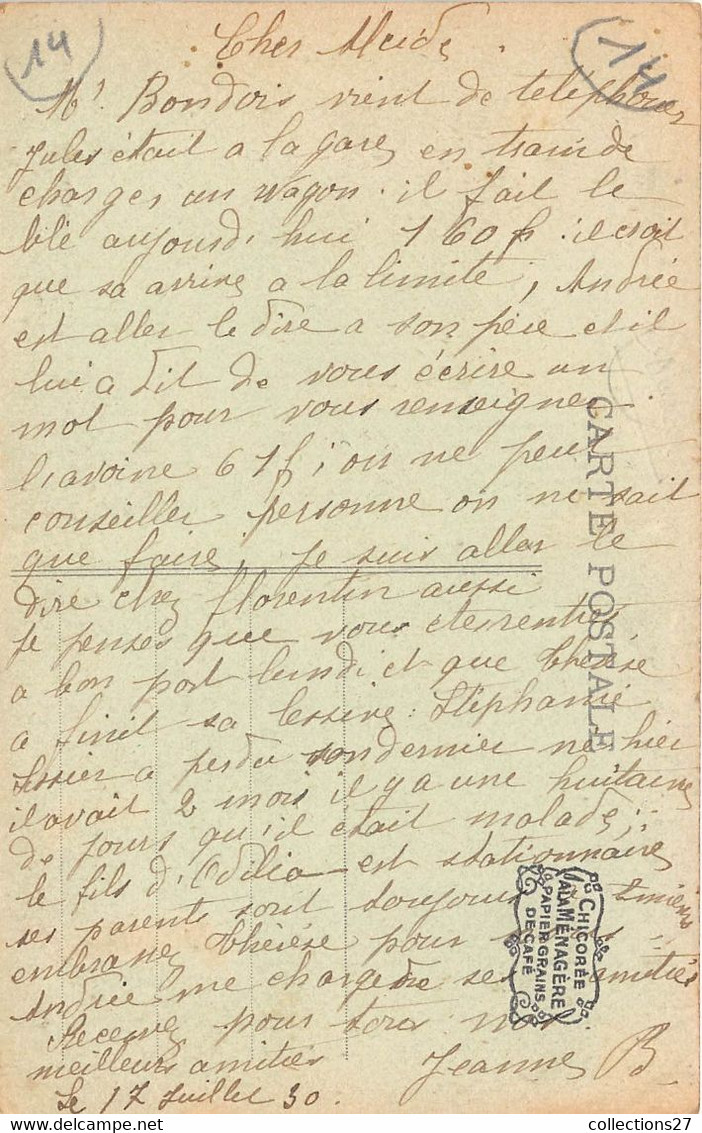 14
14
Cher Alcide
Mr. Bondois vient de telephoner
Jules était a la gare en train de
charger un wagon. il fait le
blé aujourd'hui 160 f. il croit
que sa arrive a la limite, Andrée
est aller le dire a son père et il
lui a dit de vous écrire un
mot pour vous renseigner.
l'avoine 61 f; on ne peut
conseiller personne on ne sait
que faire; Je suis aller le
dire chez florentin aussi
Je penses que vous etes rentrés
a bon port lundi et que thérèse
a finit sa lessive: Stéphanie
a perdu son dernier né hier
il avait 2 mois il y a une huitaine
de jours qu'il etait malade;
le fils d'Odilia est stationnaire
ses parents sont toujours
embrasser thérèse pour
Andrée me charge de ses amitiés
Recevez pour tous nos
meilleurs amitiés Jeanne B
Le 17 Juillet 30.
CARTE POSTALE
CHICORÉE
A LA MÉNAGÈRE
PAPIER GRAINS
DE CAFÉ
collections27